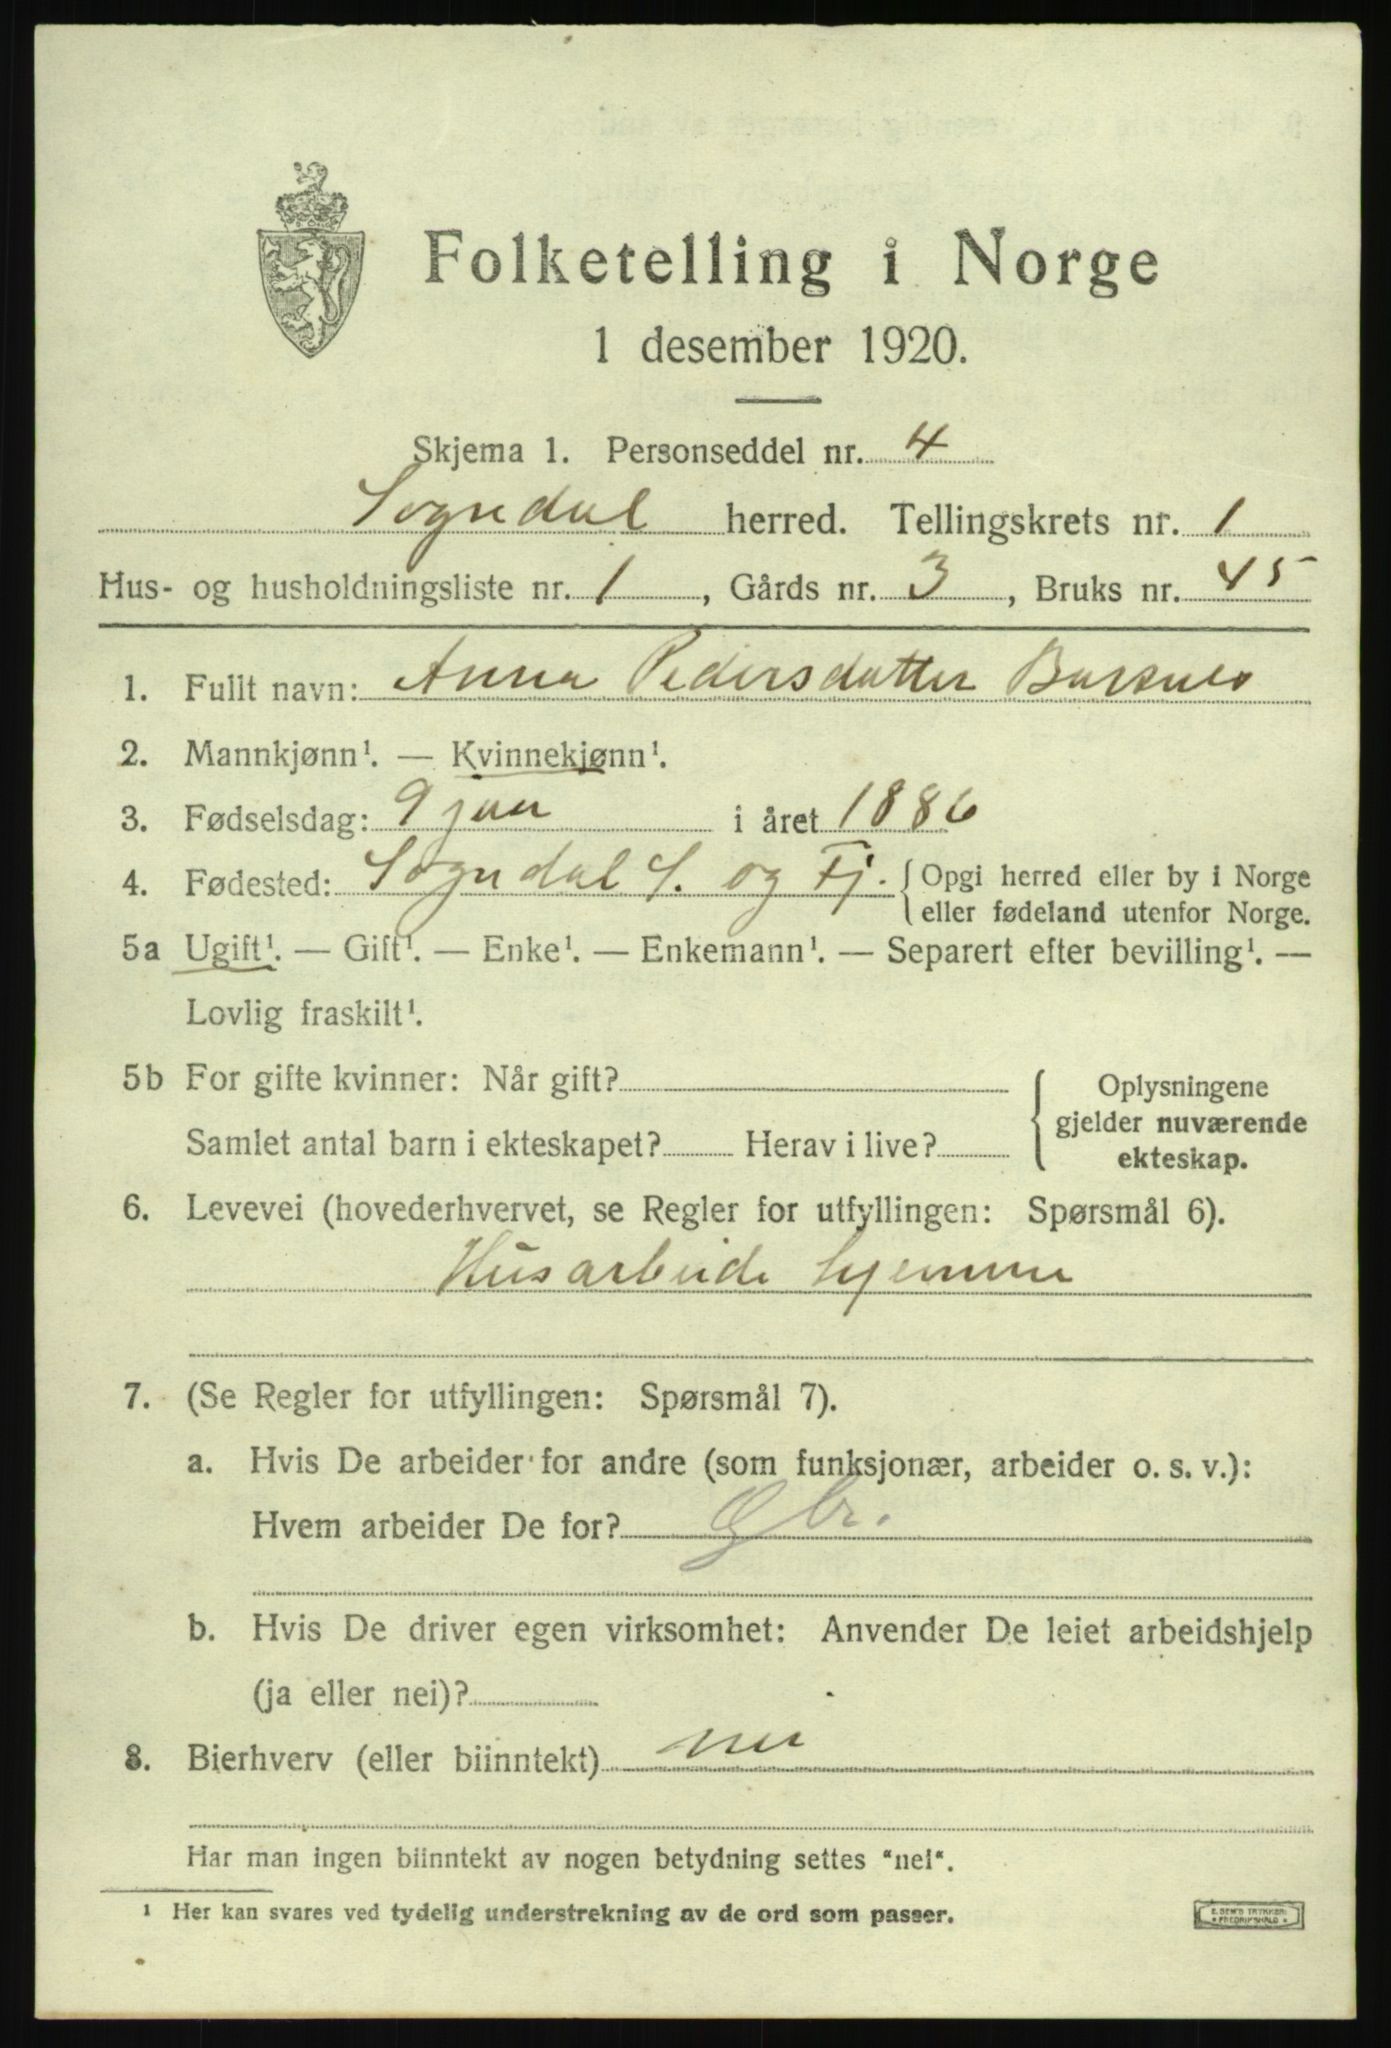 Folketelling i Norge
1 desember 1920.
Skjema 1. Personseddel nr. 4
Sogndal herred. Tellingskrets nr. 1
Hus- og husholdningsliste nr. 1, Gårds nr. 3, Bruks nr. 45
1. Fullt navn: Anna Pedersdatter Barsnes
2. Mannkjønn¹. — Kvinnekjønn¹.
3. Fødselsdag: 9 jan i året 1886
4. Fødested: Sogndal S. og Fj. {Opgi herred eller by i Norge
eller fødeland utenfor Norge.
5a Ugift¹. — Gift¹. — Enke¹. — Enkemann¹. — Separert efter bevilling¹. —
Lovlig fraskilt¹.
5b For gifte kvinner: Når gift?
Samlet antal barn i ekteskapet? Herav i live?
{ Oplysningene
gjelder nuværende
ekteskap.
6. Levevei (hovederhvervet, se Regler for utfyllingen: Spørsmål 6).
Husarbeide hjemme
7. (Se Regler for utfyllingen: Spørsmål 7).
a. Hvis De arbeider for andre (som funksjonær, arbeider o. s. v.):
Hvem arbeider De for?
b. Hvis De driver egen virksomhet: Anvender De leiet arbeidshjelp
(ja eller nei)?
8. Bierhverv (eller biinntekt) nei
Har man ingen biinntekt av nogen betydning settes "nei".
¹ Her kan svares ved tydelig understrekning av de ord som passer.
E. SEM'S TRYKKERI
FREDRIKSHALD